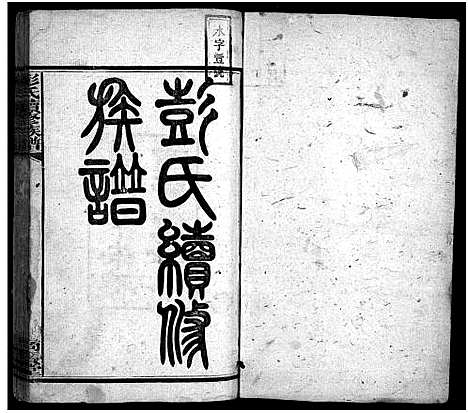 水字壹號
彭氏續修
族譜
彭氏續修族譜